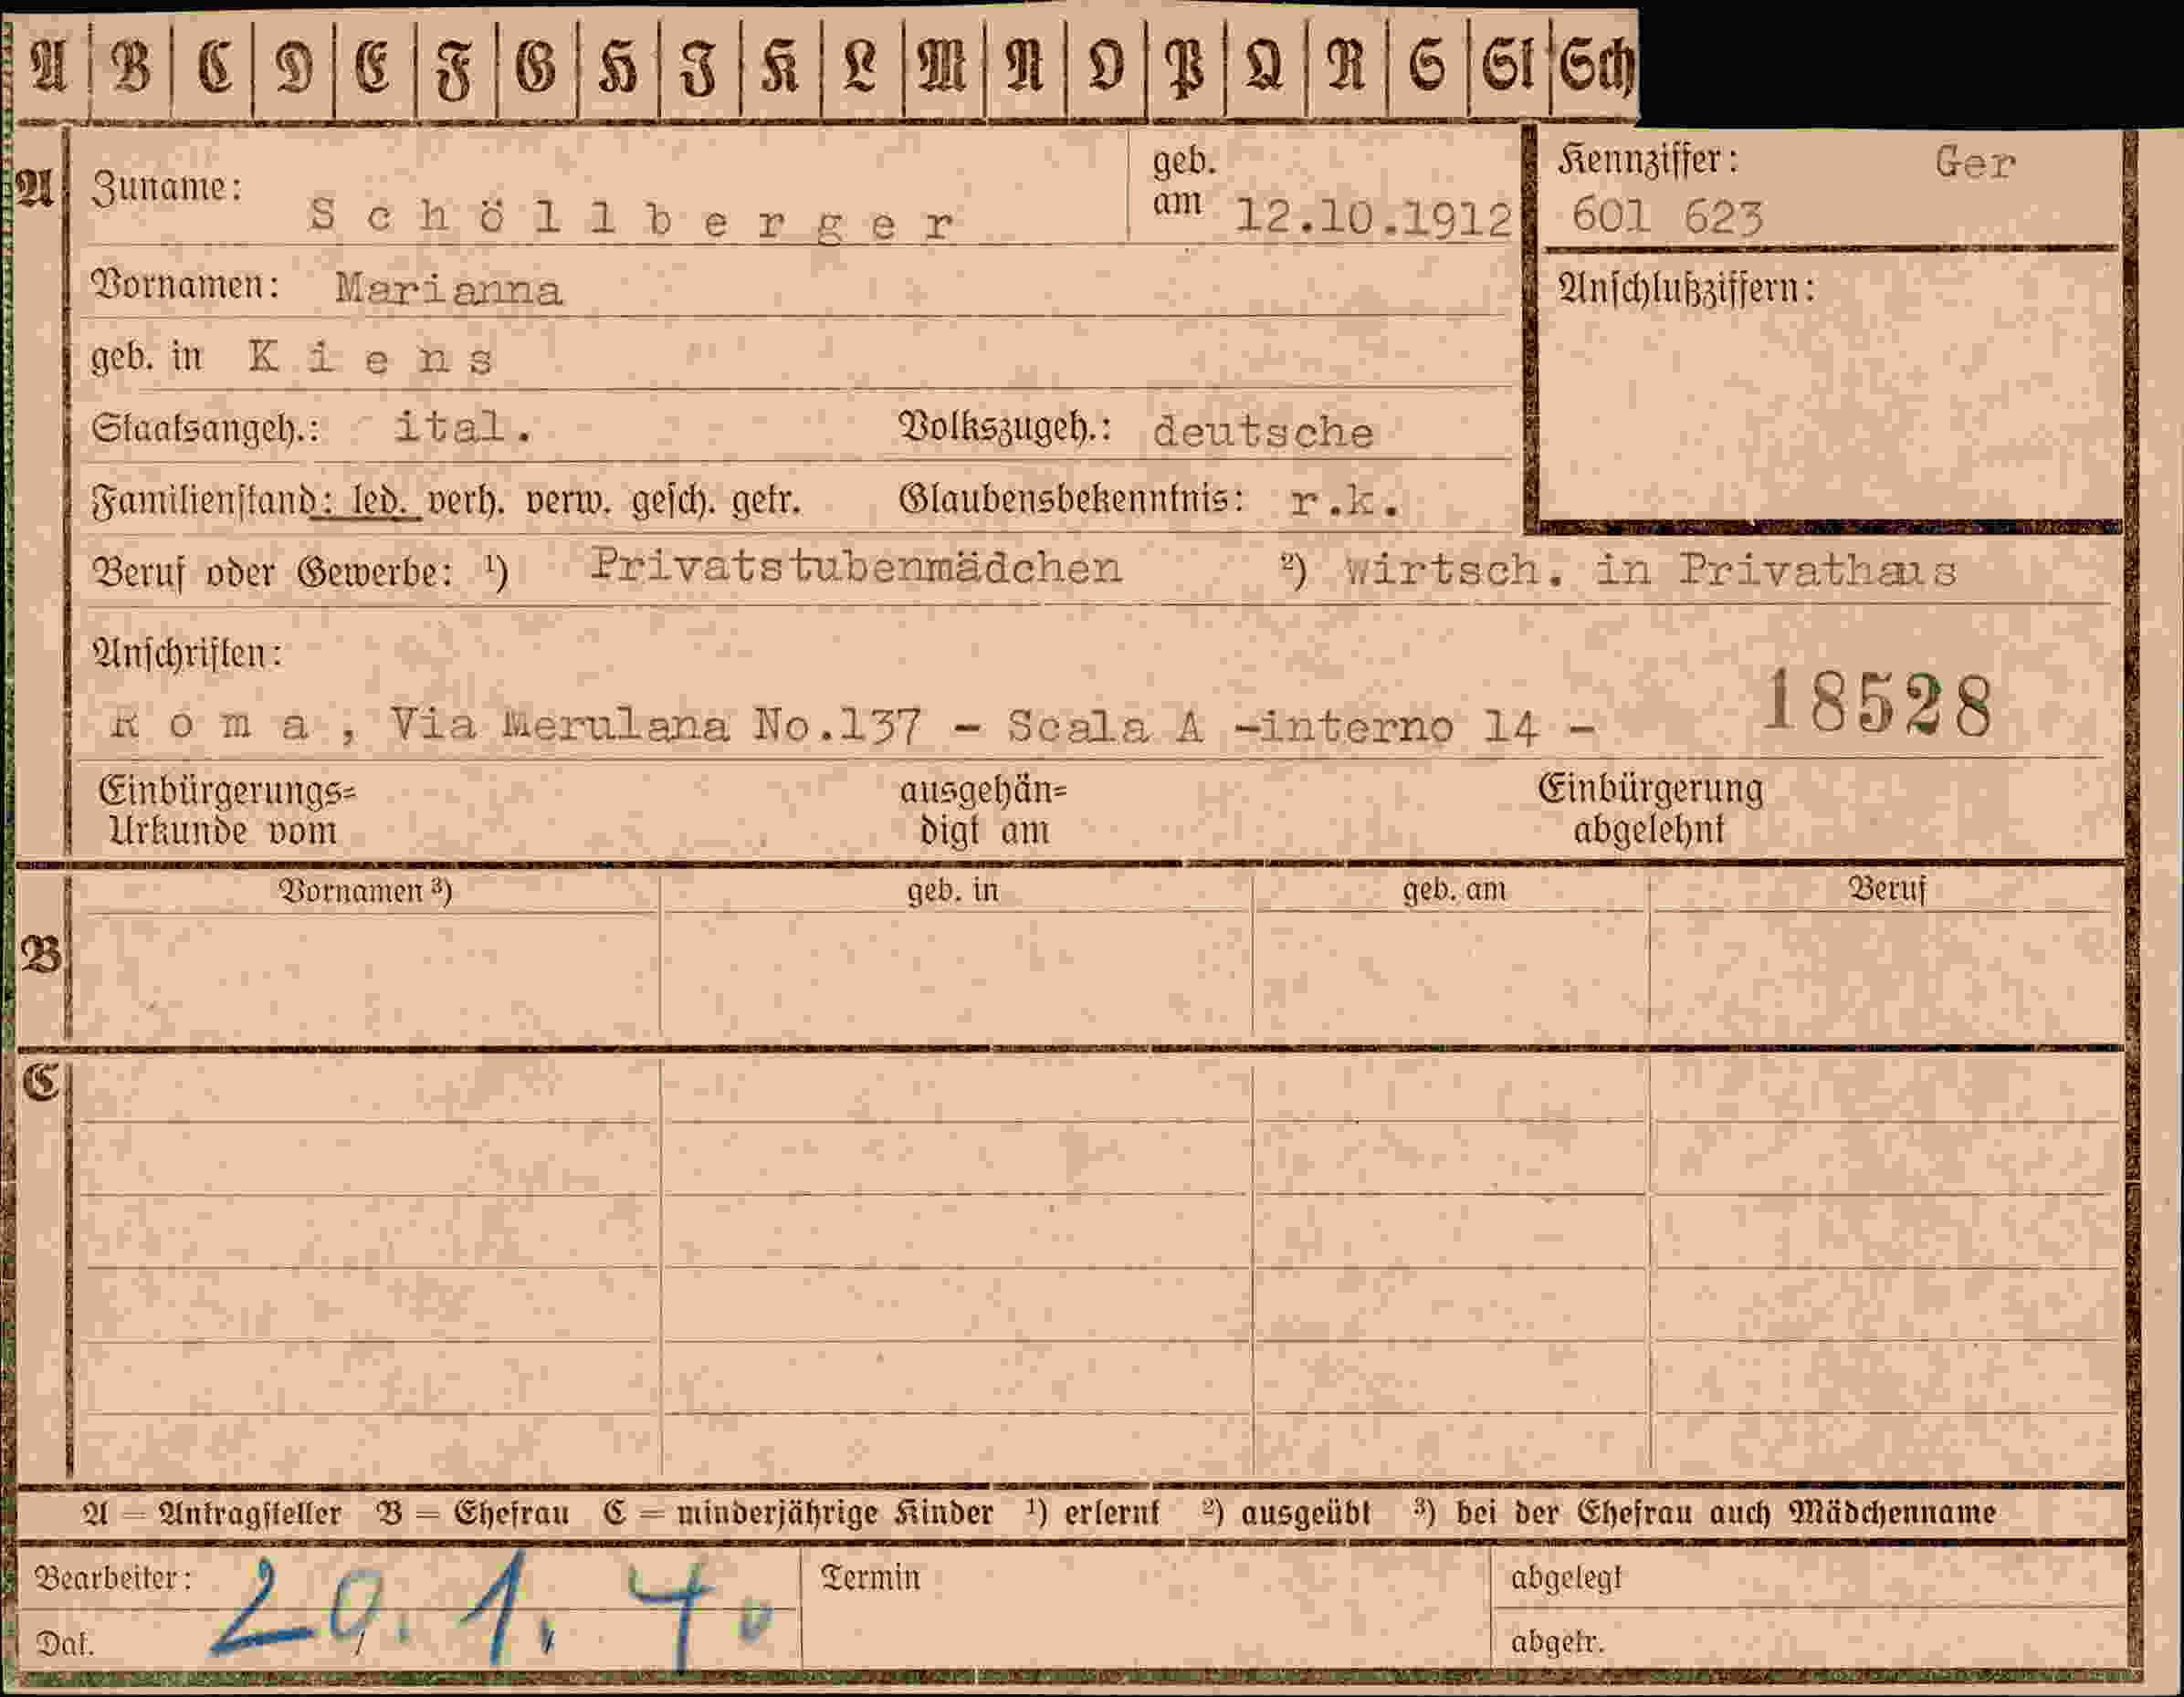 A B C D E F G H I K L M N O P Q R S St Sch
A Zuname: Schöllberger geb. am 12.10.1912 Kennziffer: Ger
601 623
Vornamen: Marianna Anschlußziffern:
geb. in Kiens
Staatsangeh.: ital. Volkszugeh.: deutsche
Familienstand: led. verh. verw. gesch. getr. Glaubensbekenntnis: r.k.
Beruf oder Gewerbe: ¹) Privatstubenmädchen ²) wirtsch. in Privathaus
Anschriften:
Roma, Via Merulana No.137 - Scala A -interno 14 - 18528
Einbürgerungs= ausgehän= Einbürgerung
Urkunde vom digt am abgelehnt
B Vornamen ³) geb. in geb. am Beruf
C
A = Antragsteller B = Ehefrau C = minderjährige Kinder ¹) erlernt ²) ausgeübt ³) bei der Ehefrau auch Mädchenname
Bearbeiter: 20. 1. 40 Termin abgelegt
Dat. abgetr.